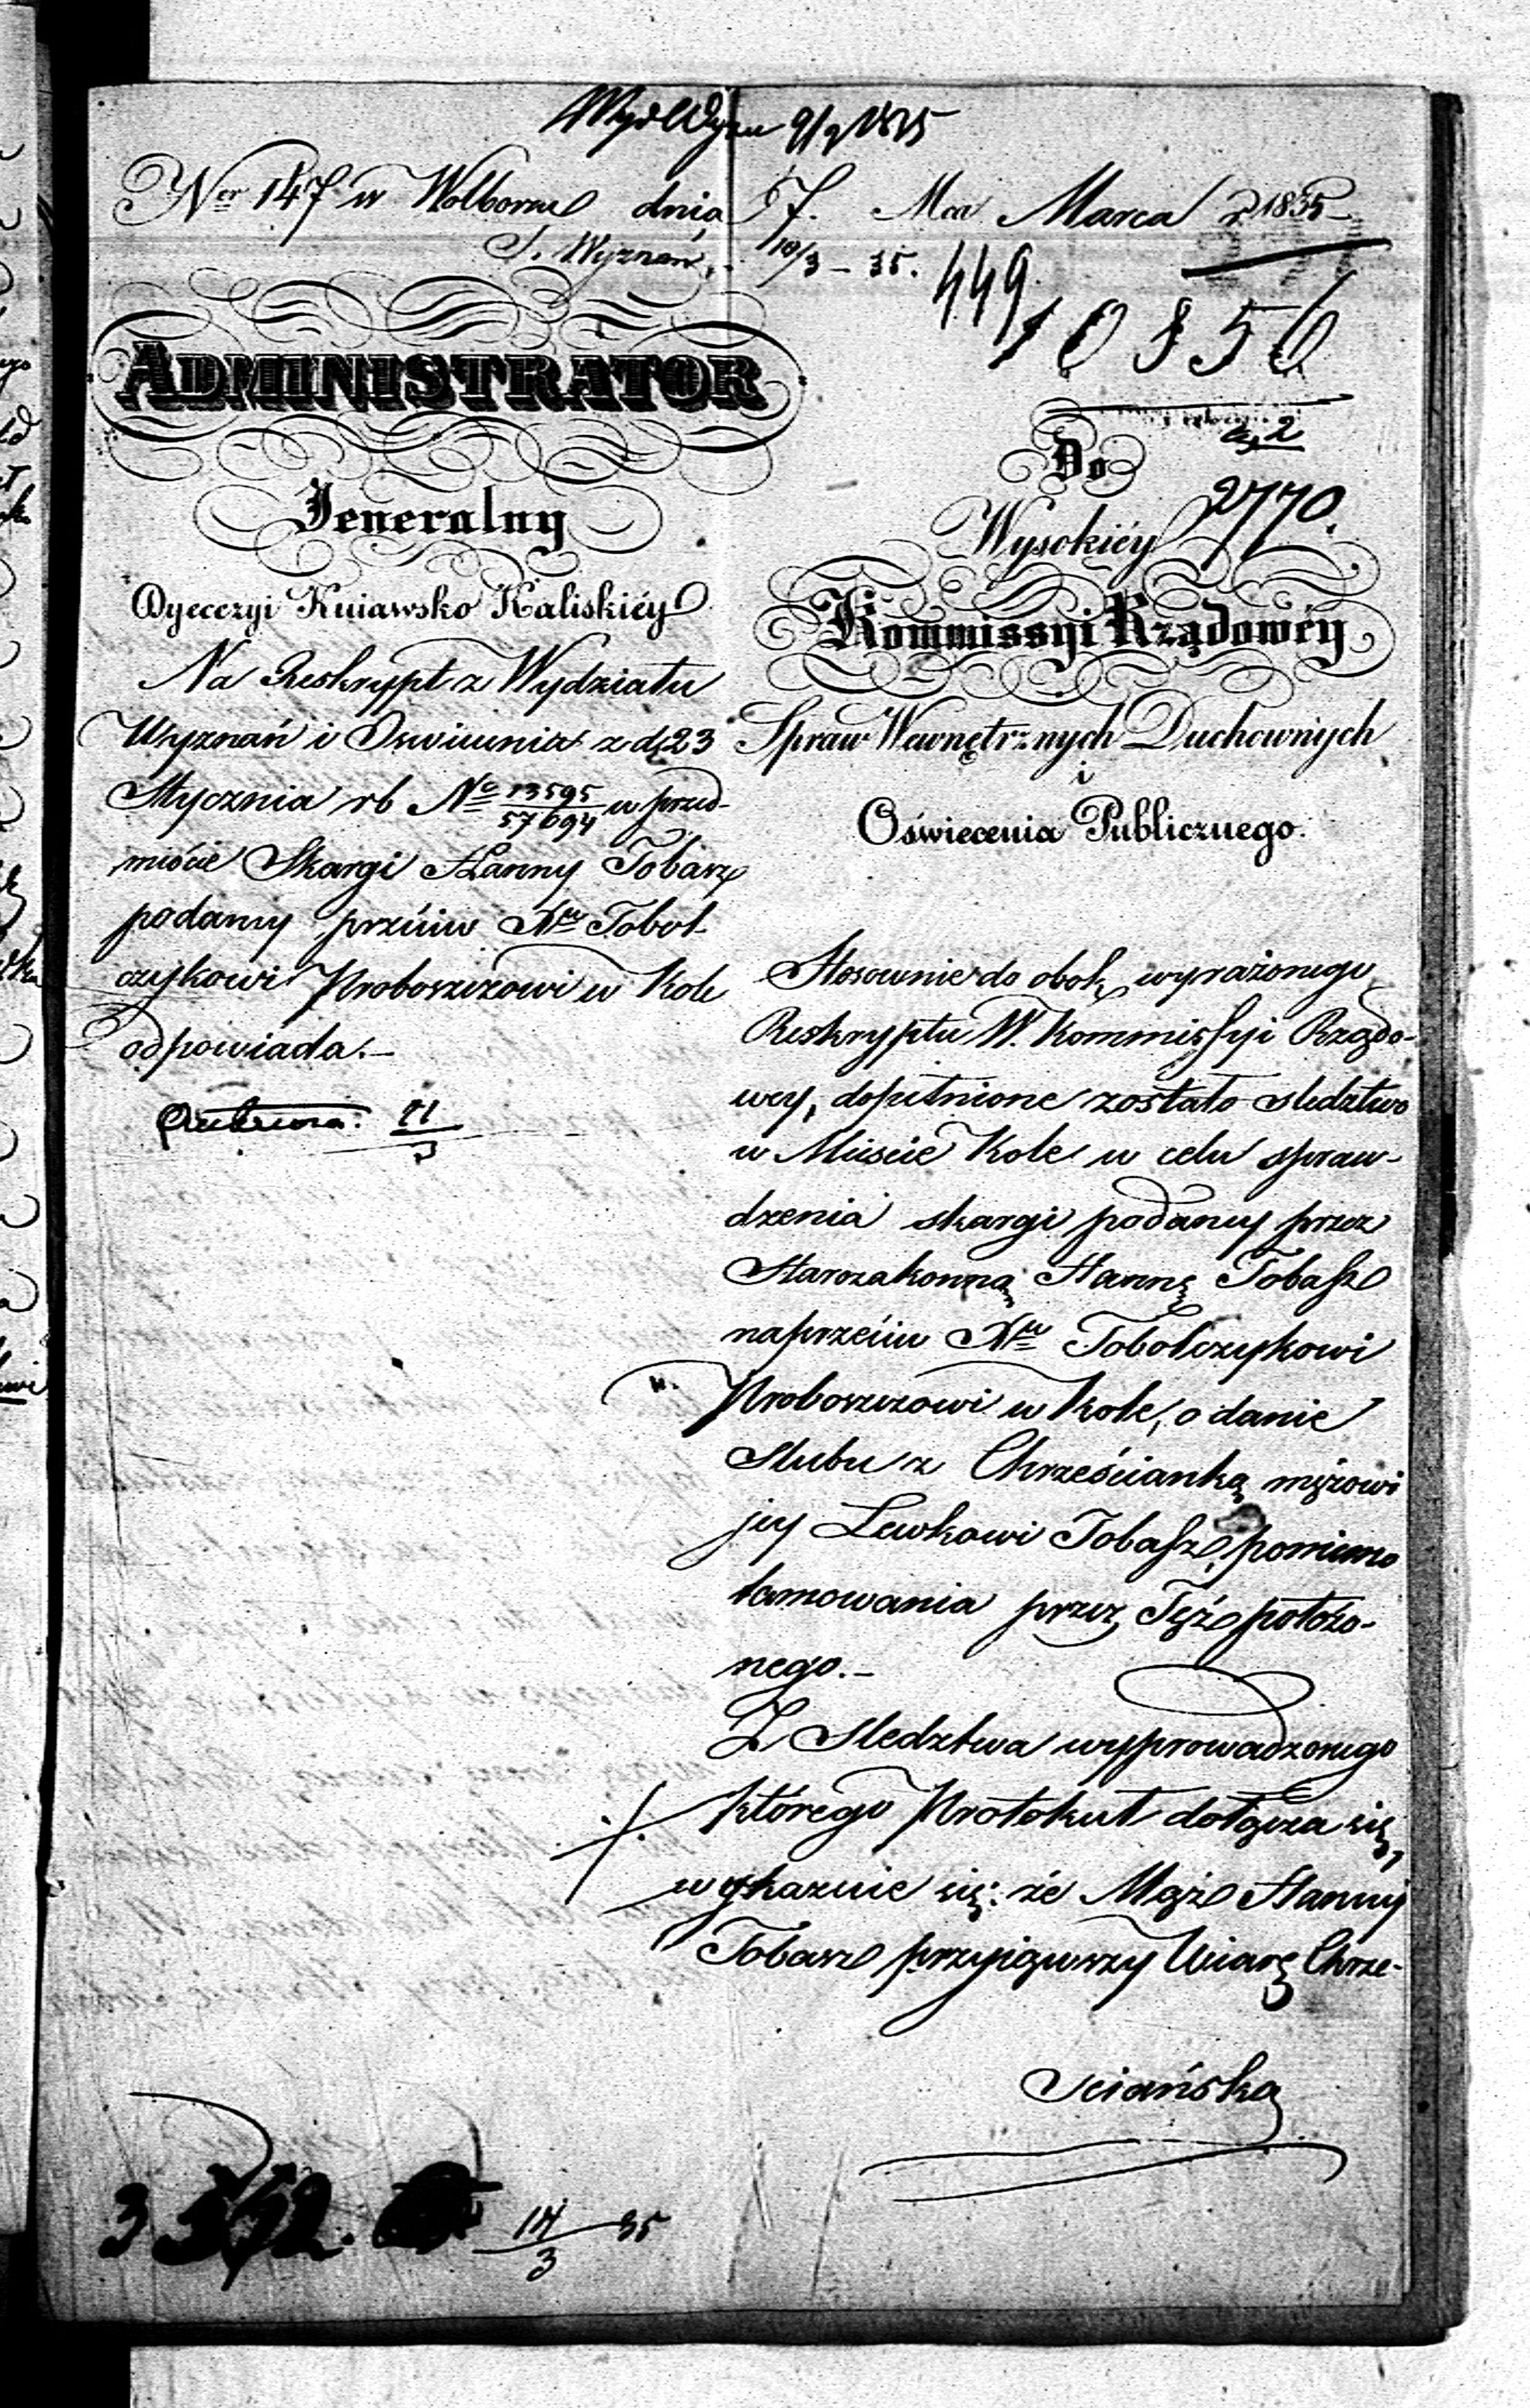 Nr 147 w Wolborzu dnia 7. Mca Marca r 1835
S. Wyznań. 10/3 – 35.
449
10856
2770.
ADMINISTRATOR
Jeneralny
Dyecezyi Kuiawsko Kaliskiéy
Na Reskrypt z Wydziatu
Wyznań i Oswiecenia z d. 23
Stycznia rb No 13595/57694 w przed-
miocie Skargi Hanny Tobasz
podaney przeciw Xu Tobol-
czykowi Proboszczowi w Kole
odpowiada.–
Do
Wysokiéy
Kommissyi Rządowéy
Spraw Wewnętrznych Duchownych
i
Oświecenia Publicznego.
Stosownie do obok wyrażonego
Reskryptu W. Kommissyi Rządo-
wey, dopełnione zostało sledztwo
w Miescie Kole w celu spraw-
dzenia skargi podaney przez
Starozakonną Hannę Tobasz
naprzeciw Xu Tobolczykowi
Proboszczowi w Kole, o danie
Slubu z Chrześcianką mężowi
jey Lewkowi Tobasz, pomimo
tamowania przez Tęż położo-
nego.–
Z Sledztwa wyprowadzonego
którego Protokuł dołącza się,
wykazuie się: że Mąż Hanny
Tobasz przyiąwszy Wiarę Chrze-
sciańską
14/3 35